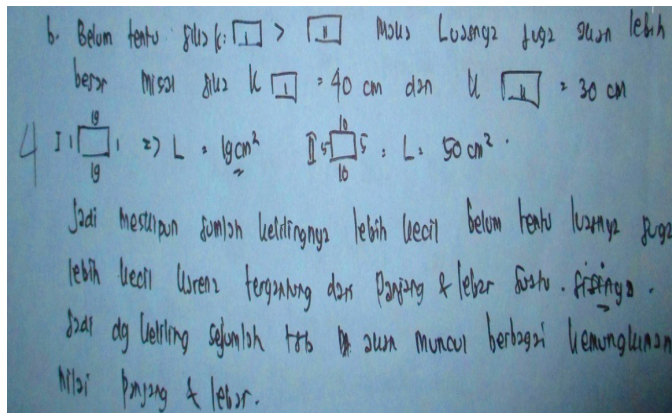 b. Belum tentu jika k: I > II maka Luasnya juga akan lebih
besar misal jika k I = 40 cm dan k II = 30 cm
19 10
4 I 1 1 => L = 19 cm² II 5 5 = L = 50 cm².
19 10
Jadi meskipun jumlah kelilingnya lebih kecil belum tentu luasnya juga
lebih kecil karena tergantung dari Panjang & lebar suatu sisinya.
Jadi dg keliling sejumlah akan muncul berbagai kemungkinan
nilai panjang & lebar.